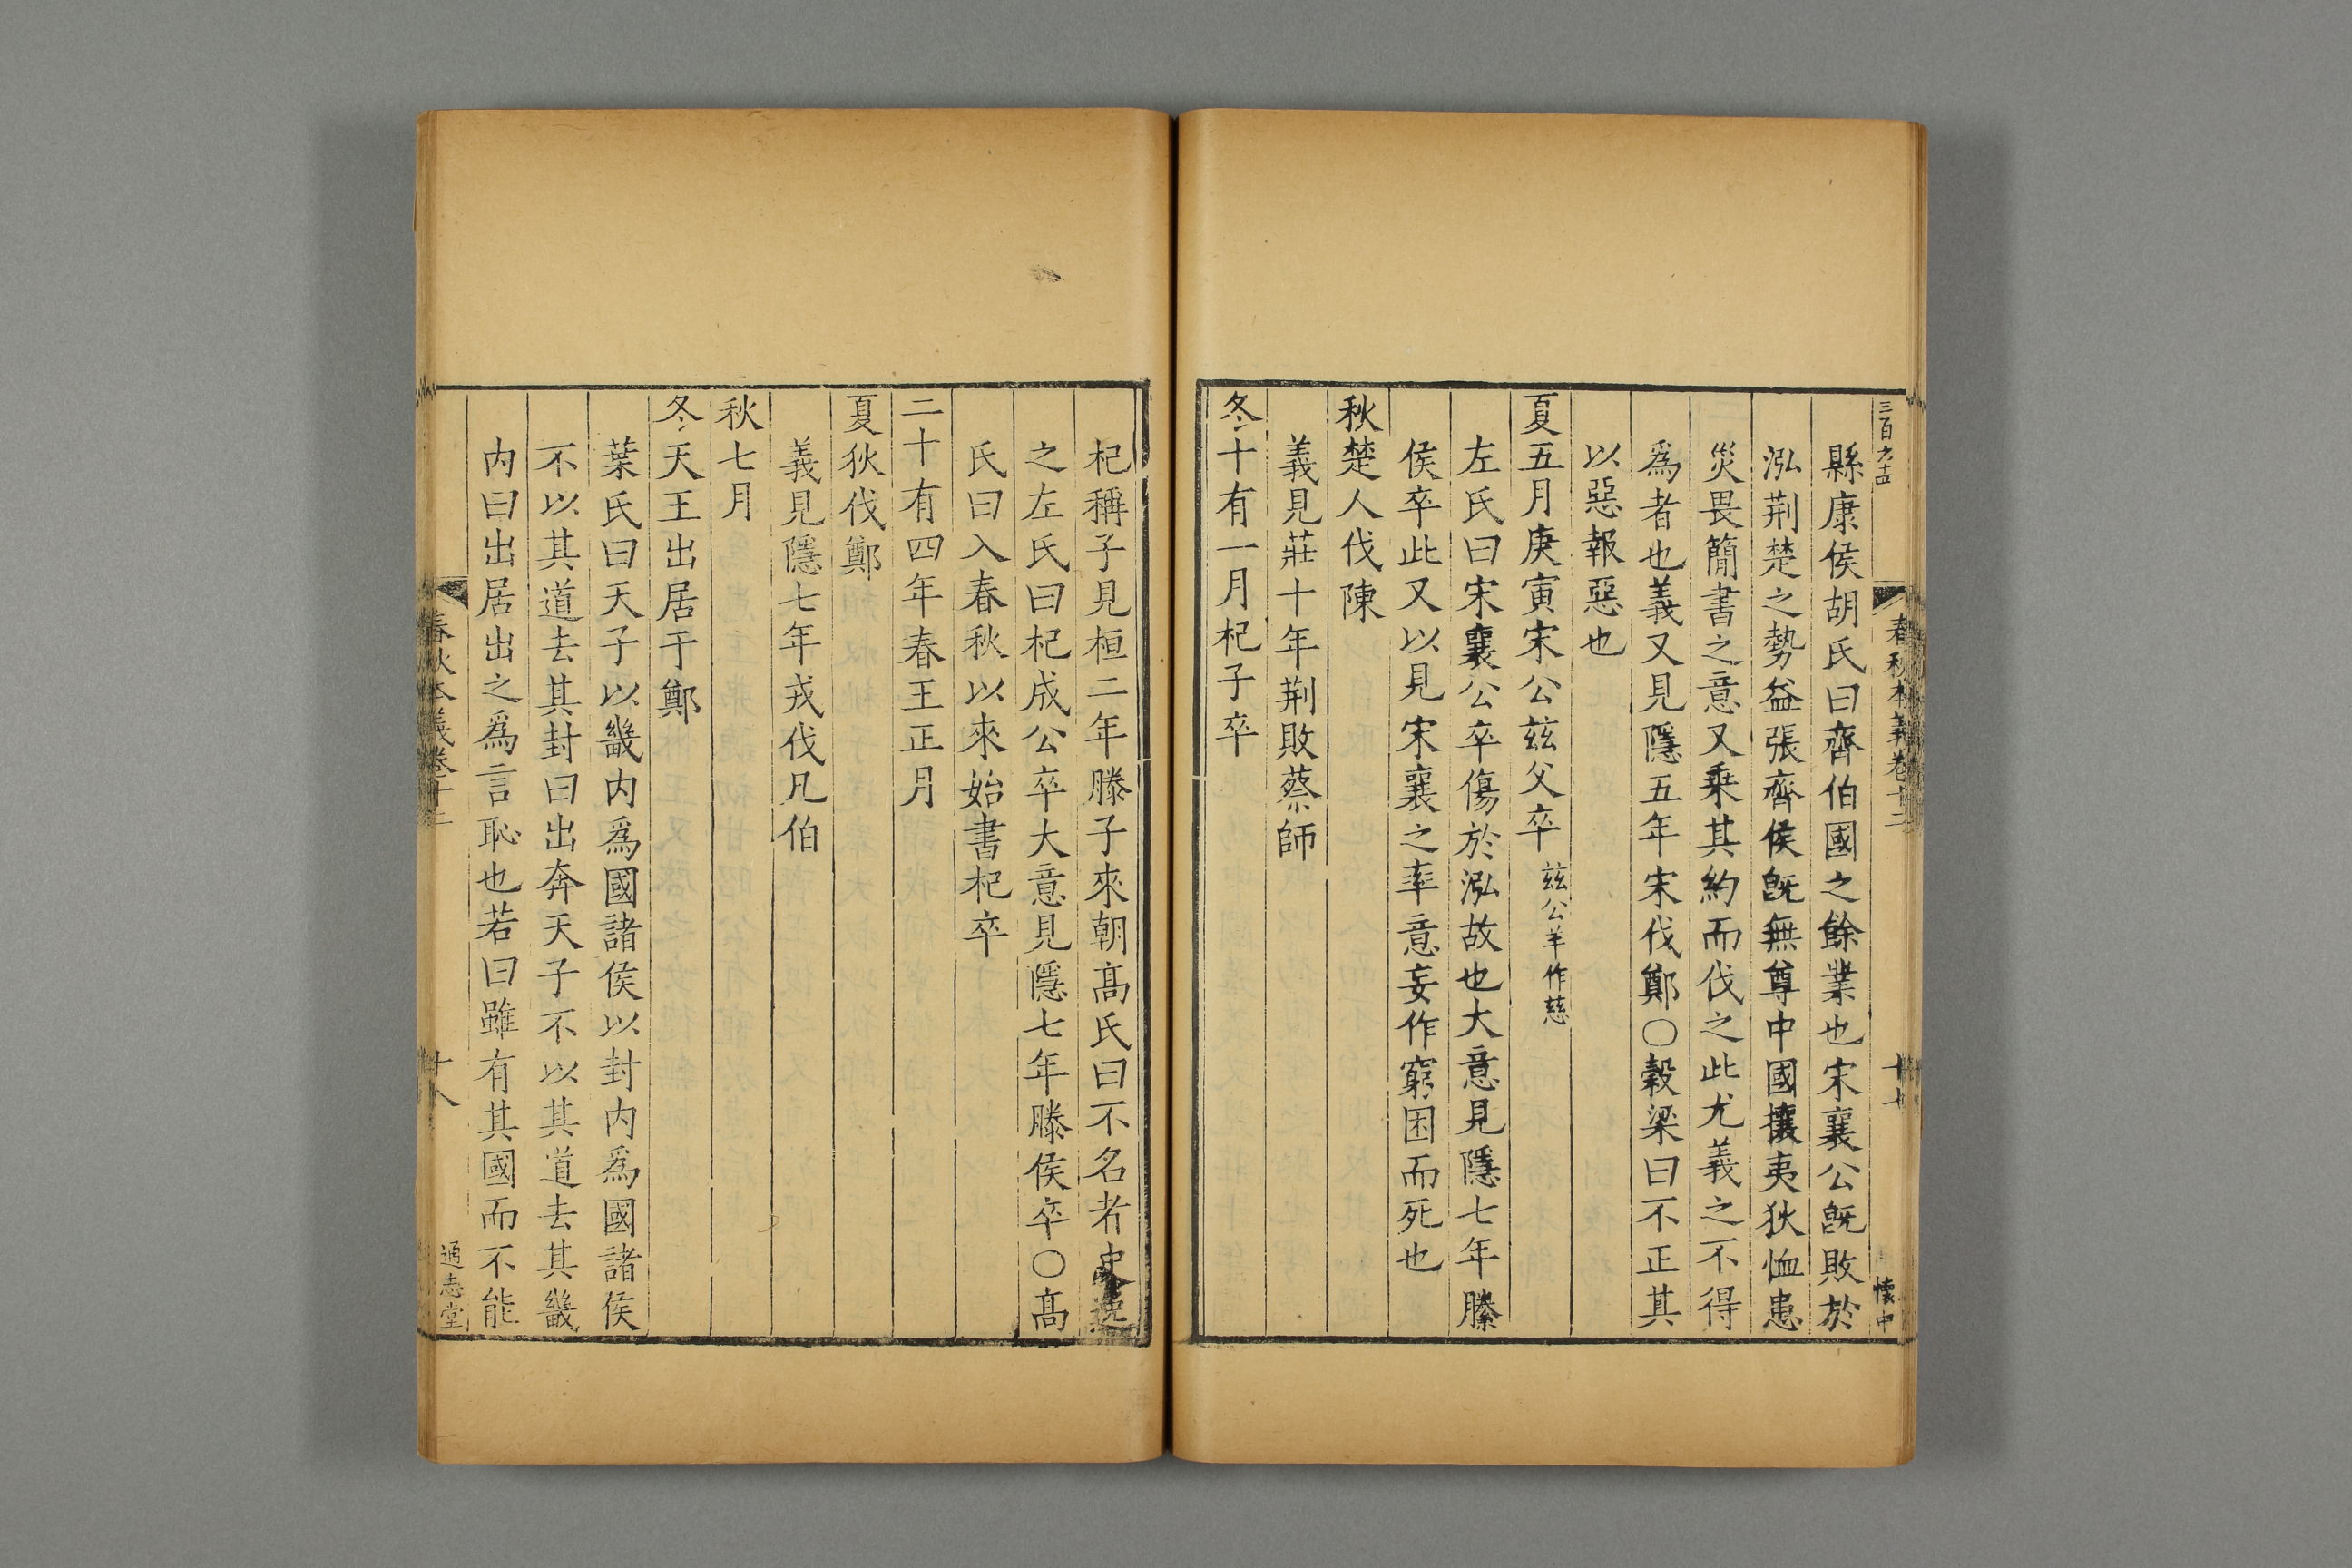 三百六十四
春秋本義卷十二
十七
懷中
縣康侯胡氏曰齊伯國之餘業也宋襄公旣敗於
泓荆楚之勢益張齊侯旣無尊中國攘夷狄恤患
災畏簡書之意又乗其約而伐之此尤義之不得
爲者也義又見隱五年宋伐鄭○穀梁曰不正其
以惡報惡也
夏五月庚寅宋公兹父卒兹公羊作慈
左氏曰宋襄公卒傷於泓故也大意見隱七年滕
侯卒此又以見宋襄之率意妄作窮困而死也
秋楚人伐陳
義見莊十年荆敗蔡師
冬十有一月杞子卒
杞稱子見桓二年滕子來朝髙氏曰不名者史逸
之左氏曰杞成公卒大意見隱七年滕侯卒○髙
氏曰入春秋以來始書杞卒
二十有四年春王正月
夏狄伐鄭
義見隱七年戎伐凡伯
秋七月
冬天王出居于鄭
葉氏曰天子以畿内爲國諸侯以封内爲國諸侯
不以其道去其封曰出奔天子不以其道去其畿
内曰出居出之爲言恥也若曰雖有其國而不能
春秋本義卷十二
十八
通志堂